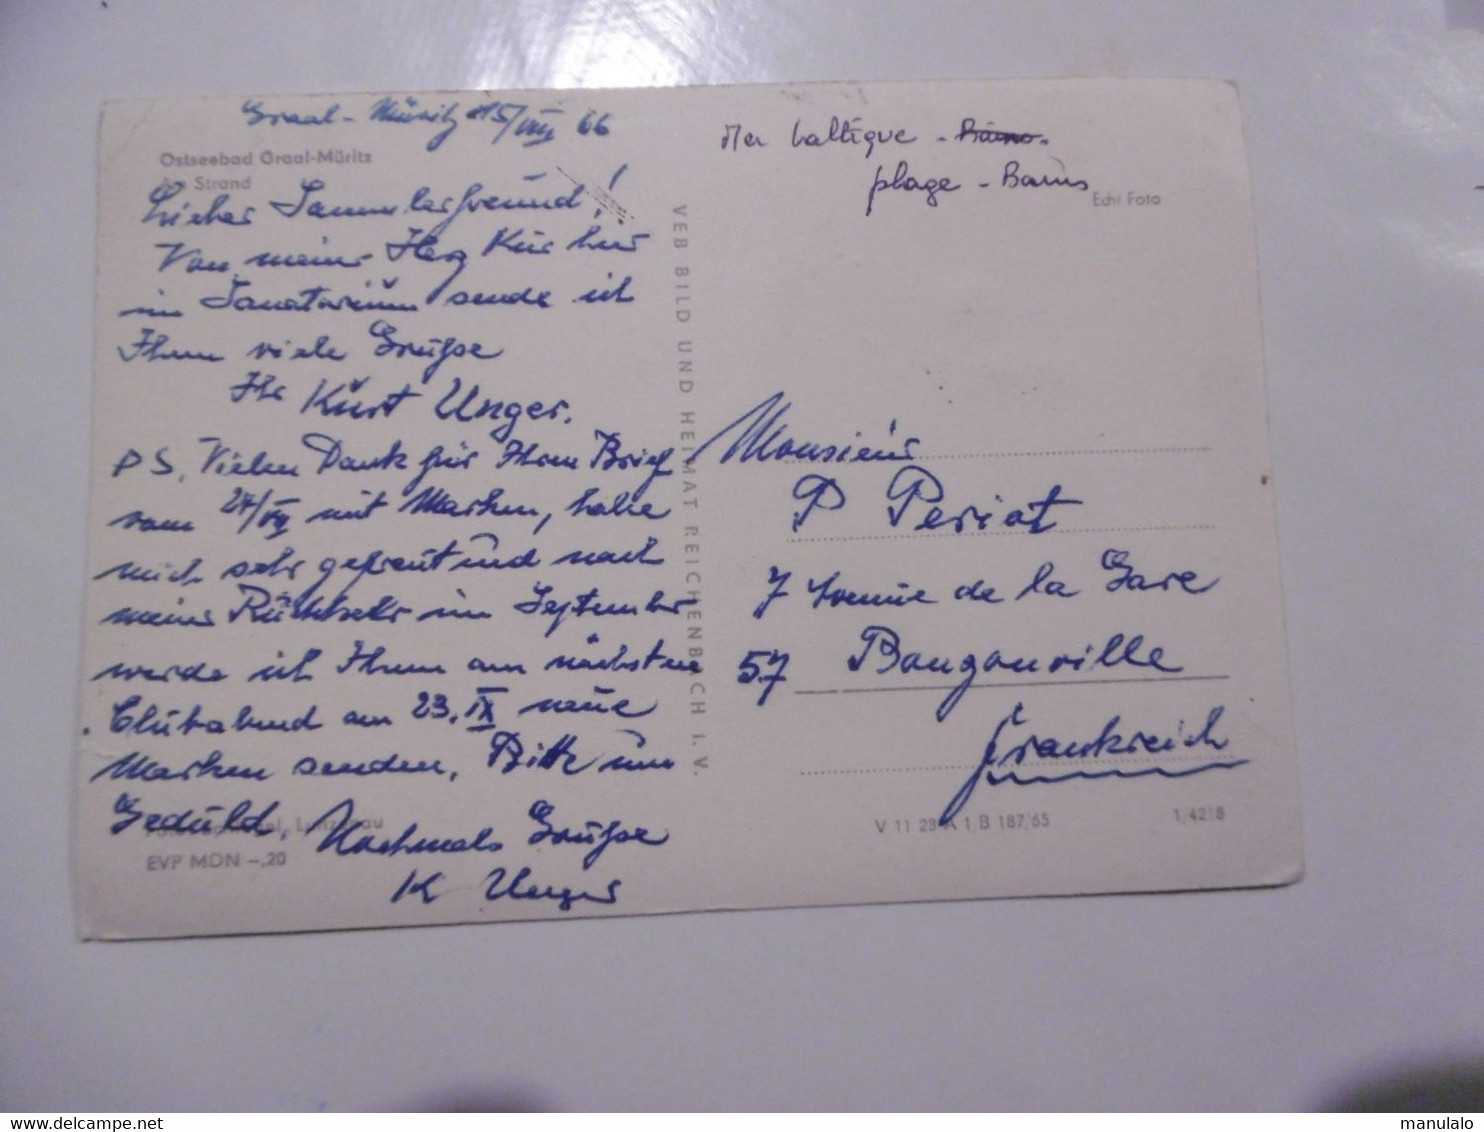 Graal-Müritz 15/VIII 66
Ostseebad Graal-Müritz
Am Strand
Lieber Sammlerfreund!
Von meiner Herz Kur hier
im Sanatorium sende ich
Ihnen viele Grüße
Ihr Kurt Unger.
PS. Vielen Dank für Ihren Brief
vom 24/VII mit Marken, habe
mich sehr gefreut und nach
meiner Rückkehr im September
werde ich Ihnen am nächsten
Clubabend am 23. IX neue
Marken senden, Bitte um
Geduld, Nochmals Grüße
K Unger
EVP MDN -,20
VEB BILD UND HEIMAT REICHENBACH I. V.
Mer baltique -
plage - Bains
Echt Foto
Monsieur
P Periot
7 Avenue de la Gare
57 Bouzonville
Frankreich
V 11 28 A 1 B 187/65
1/4218
delcampe.net
manulalo